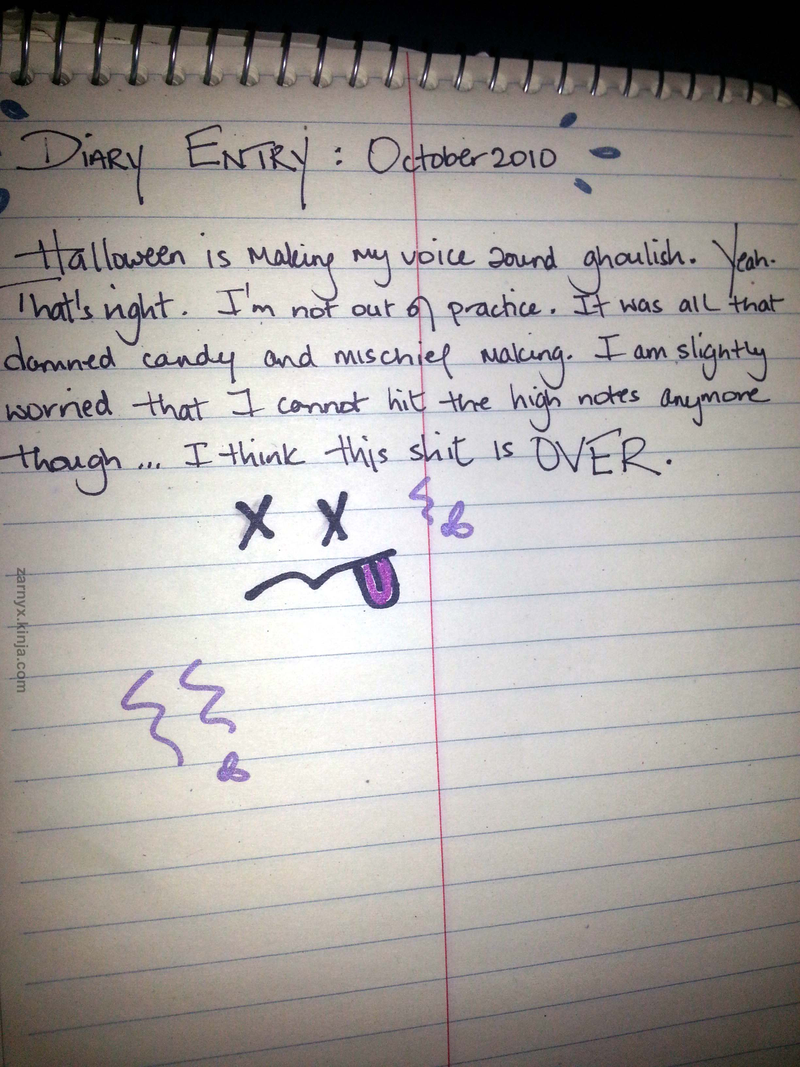 DIARY ENTRY: October 2010
Halloween is making my voice sound ghoulish. Yeah.
That's right. I'm not out of practice. It was all that
damned candy and mischief making. I am slightly
worried that I cannot hit the high notes anymore
though... I think this shit is OVER.
zarnyx.kinja.com